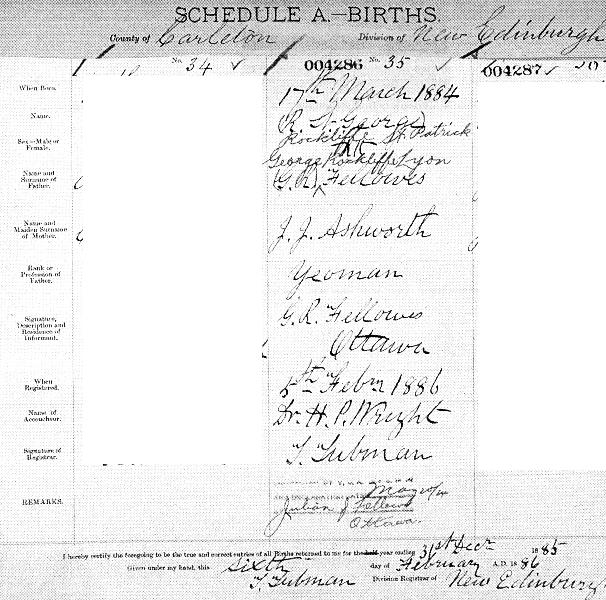 SCHEDULE A.—BIRTHS.
County of Carleton Division of New Edinburgh
No. 34 004286 No. 35 004287
When Born. 17th March 1884
Name. (R. L. George)
Rockliffe St. Patrick
Sex—Male or Female. Male
George Rockliffe Lyon
Name and Surname of Father. (G.R.) Fellowes
Name and Maiden Surname of Mother. J. J. Ashworth
Rank or Profession of Father. Yeoman
Signature, Description and Residence of Informant. G.R. Fellowes
Ottawa
When Registered. 5th Febry 1886
Name of Accoucheur. Dr. H. P. Wright
Signature of Registrar. T. Tubman
REMARKS.
Julian Fellowes
Ottawa.
I hereby certify the foregoing to be the true and correct entries of all Births returned to me for the half-year ending 31st Decr 1885
Given under my hand, this sixth day of February A.D. 1886
T. Tubman Division Registrar of New Edinburgh